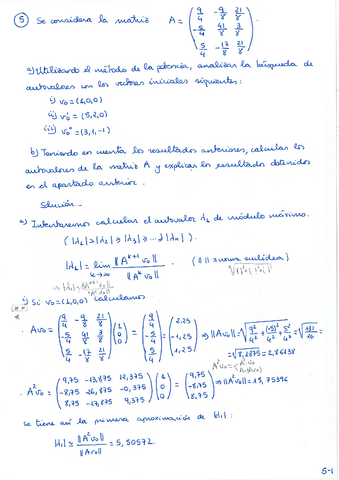 ⑤ Se considera la matriz A = ( 9/4 -9/8 21/8
-5/4 41/8 3/8
5/4 -17/8 21/8 )
a) Utilizando el método de la potencia, analizar la búsqueda de
autovalores con los vectores iniciales siguientes:
i) v₀ = (1,0,0)
ii) v₀' = (5,2,0)
iii) v₀'' = (3,1,-1)
b) Teniendo en cuenta los resultados anteriores, calcular los
autovalores de la matriz A y explicar los resultados obtenidos
en el apartado anterior.
Solución.-
a) Intentaremos calcular el autovalor λ₁ de módulo máximo.
( |λ₁| > |λ₂| ≥ |λ₃| ≥ ... ≥ |λₙ| ).
|λ₁| = lim k→∞ ‖A^(k+1) v₀‖ / ‖A^k v₀‖ . ( ‖ ‖ ≡ norma euclídea )
i) Si v₀ = (1,0,0) calculamos
Av₀ = ( 9/4 -9/8 21/8
-5/4 41/8 3/8
5/4 -17/8 21/8 ) (1 0 0) = (9/4 -5/4 5/4) = (2,25 -1,25 1,25) ⇒ ‖Av₀‖ = √(9²/4² + (-5)²/4² + 5²/4²) = √(131/16) =
= √8,1875 = 2,86138
A²v₀ = ( 9,75 -13,875 12,375
-8,75 26,875 -0,375
8,75 -17,875 9,375 ) (1 0 0) = (9,75 -8,75 8,75) ⇒ ‖A²v₀‖ = 15,75396
se tiene así la primera aproximación de |λ₁| :
|λ₁| ≃ ‖A²v₀‖ / ‖Av₀‖ = 5,50572.
5-1